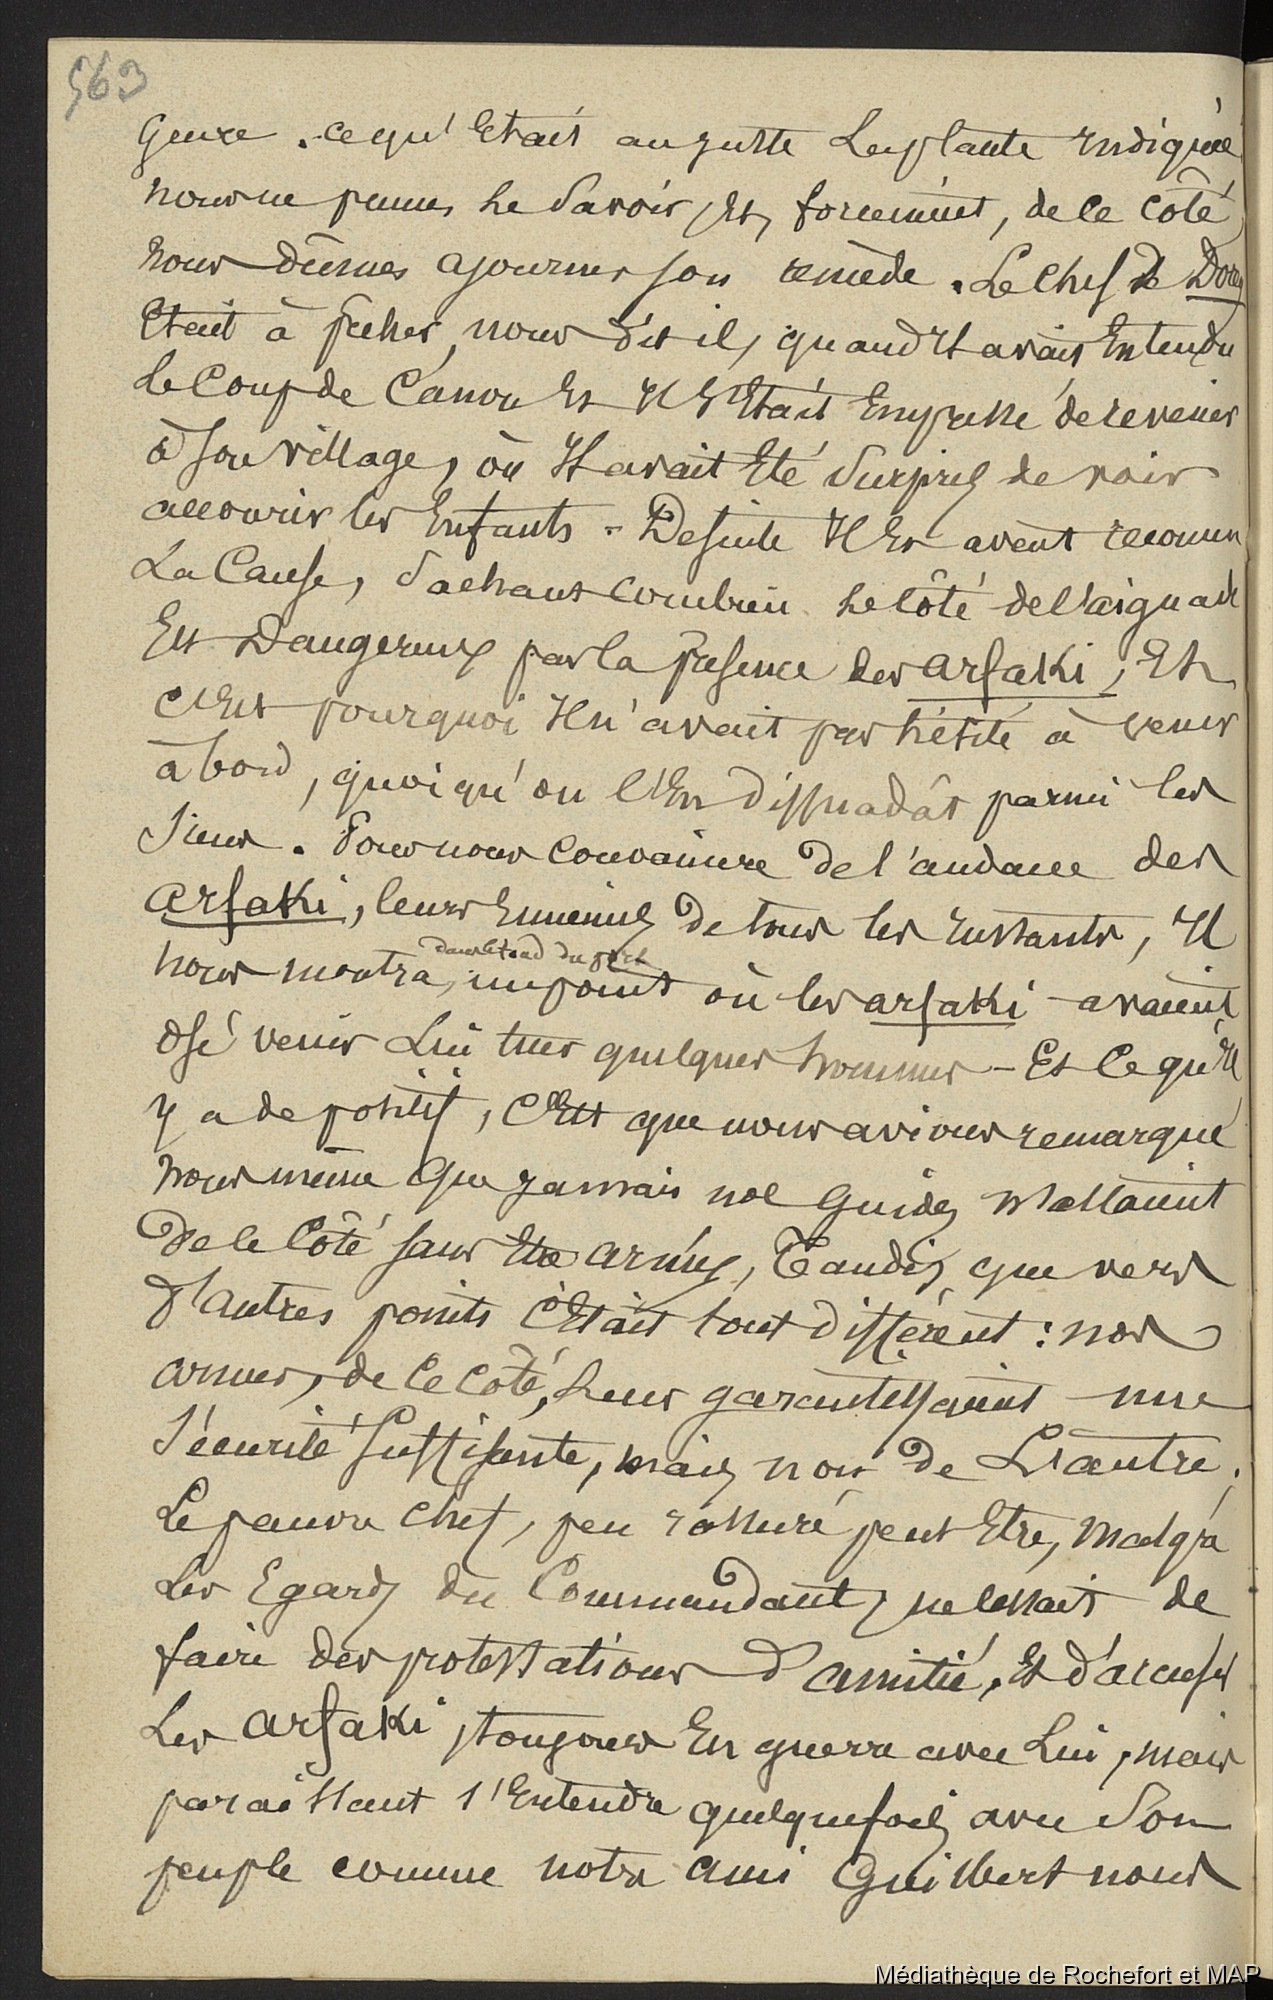 563
genre. ce qu'était au juste la plante indiquée
nous ne pumes le savoir, et, forcement, de ce côté,
nous dûmes ajourner son remède. Le chef de Dorey
était à pêcher, nous dit il, quand il avait entendu
le coup de canon et il s'était empressé de revenir
à son village, où il avait été surpris de voir
accourir les enfants - De suite il en avait reconnu
la cause, sachant combien le côté de l'aiguade
est dangereux par la présence des arfaki, et
c'est pourquoi il n'avait pas hésité à venir
à bord, quoiqu'on l'en dissuadât parmi les
siens. Pour nous convaincre de l'audace des
arfaki, leurs ennemis de tous les instants, il
dans le fond du port
nous montra, un point où les arfaki avaient
osé venir lui tuer quelques hommes - Et ce qu'il
y a de positif, c'est que nous avions remarqué
nous même que jamais nos guides n'allaient
de ce côté sans être armés, tandis que vers
d'autres points c'était tout différent : nos
armes, de ce côté, leur garantissaient une
sécurité suffisante, mais non de l'autre.
Le pauvre chef, peu rassuré peut être, malgré
les égards du Commandant, ne cessait de
faire des protestations d'amitié, et d'accuser
les arfaki, toujours en guerre avec lui, mais
paraissant s'entendre quelquefois avec son
peuple comme notre ami Guilbert nous
Médiathèque de Rochefort et MAP